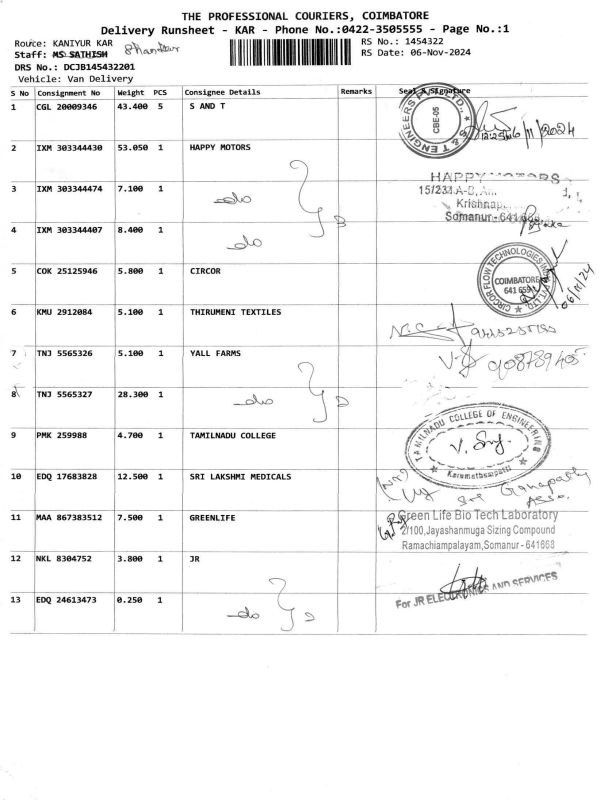 THE PROFESSIONAL COURIERS, COIMBATORE
Delivery Runsheet - KAR - Phone No.:0422-3505555 - Page No.:1
Route: KANIYUR KAR
RS No.: 1454322
Staff: MS SATHISH
RS Date: 06-Nov-2024
DRS No.: DCJB145432201
Vehicle: Van Delivery
S No Consignment No Weight PCS Consignee Details Remarks Seal & Signature
1 CGL 20009346 43.400 5 S AND T
S & T ENGINEERS PVT. LTD. CBE-05
2 IXM 303344430 53.050 1 HAPPY MOTORS
HAPPY MOTORS
3 IXM 303344474 7.100 1 do
15/231 A-B,
Krishnap
Somanur - 641 668
4 IXM 303344407 8.400 1 do
5 COK 25125946 5.800 1 CIRCOR
CIRCOR FLOW TECHNOLOGIES COIMBATORE 641 659
06/11/24
6 KMU 2912084 5.100 1 THIRUMENI TEXTILES
7 TNJ 5565326 5.100 1 YALL FARMS
8 TNJ 5565327 28.300 1 do
9 PMK 259988 4.700 1 TAMILNADU COLLEGE
TAMILNADU COLLEGE OF ENGINEERING
Karumathampatti
10 EDQ 17683828 12.500 1 SRI LAKSHMI MEDICALS
Sri Ganapathy
11 MAA 867383512 7.500 1 GREENLIFE
Green Life Bio Tech Laboratory
2/100,Jayashanmuga Sizing Compound
Ramachiampalayam,Somanur - 641668
12 NKL 8304752 3.800 1 JR
For JR ELECTRONICS AND SERVICES
13 EDQ 24613473 0.250 1 do